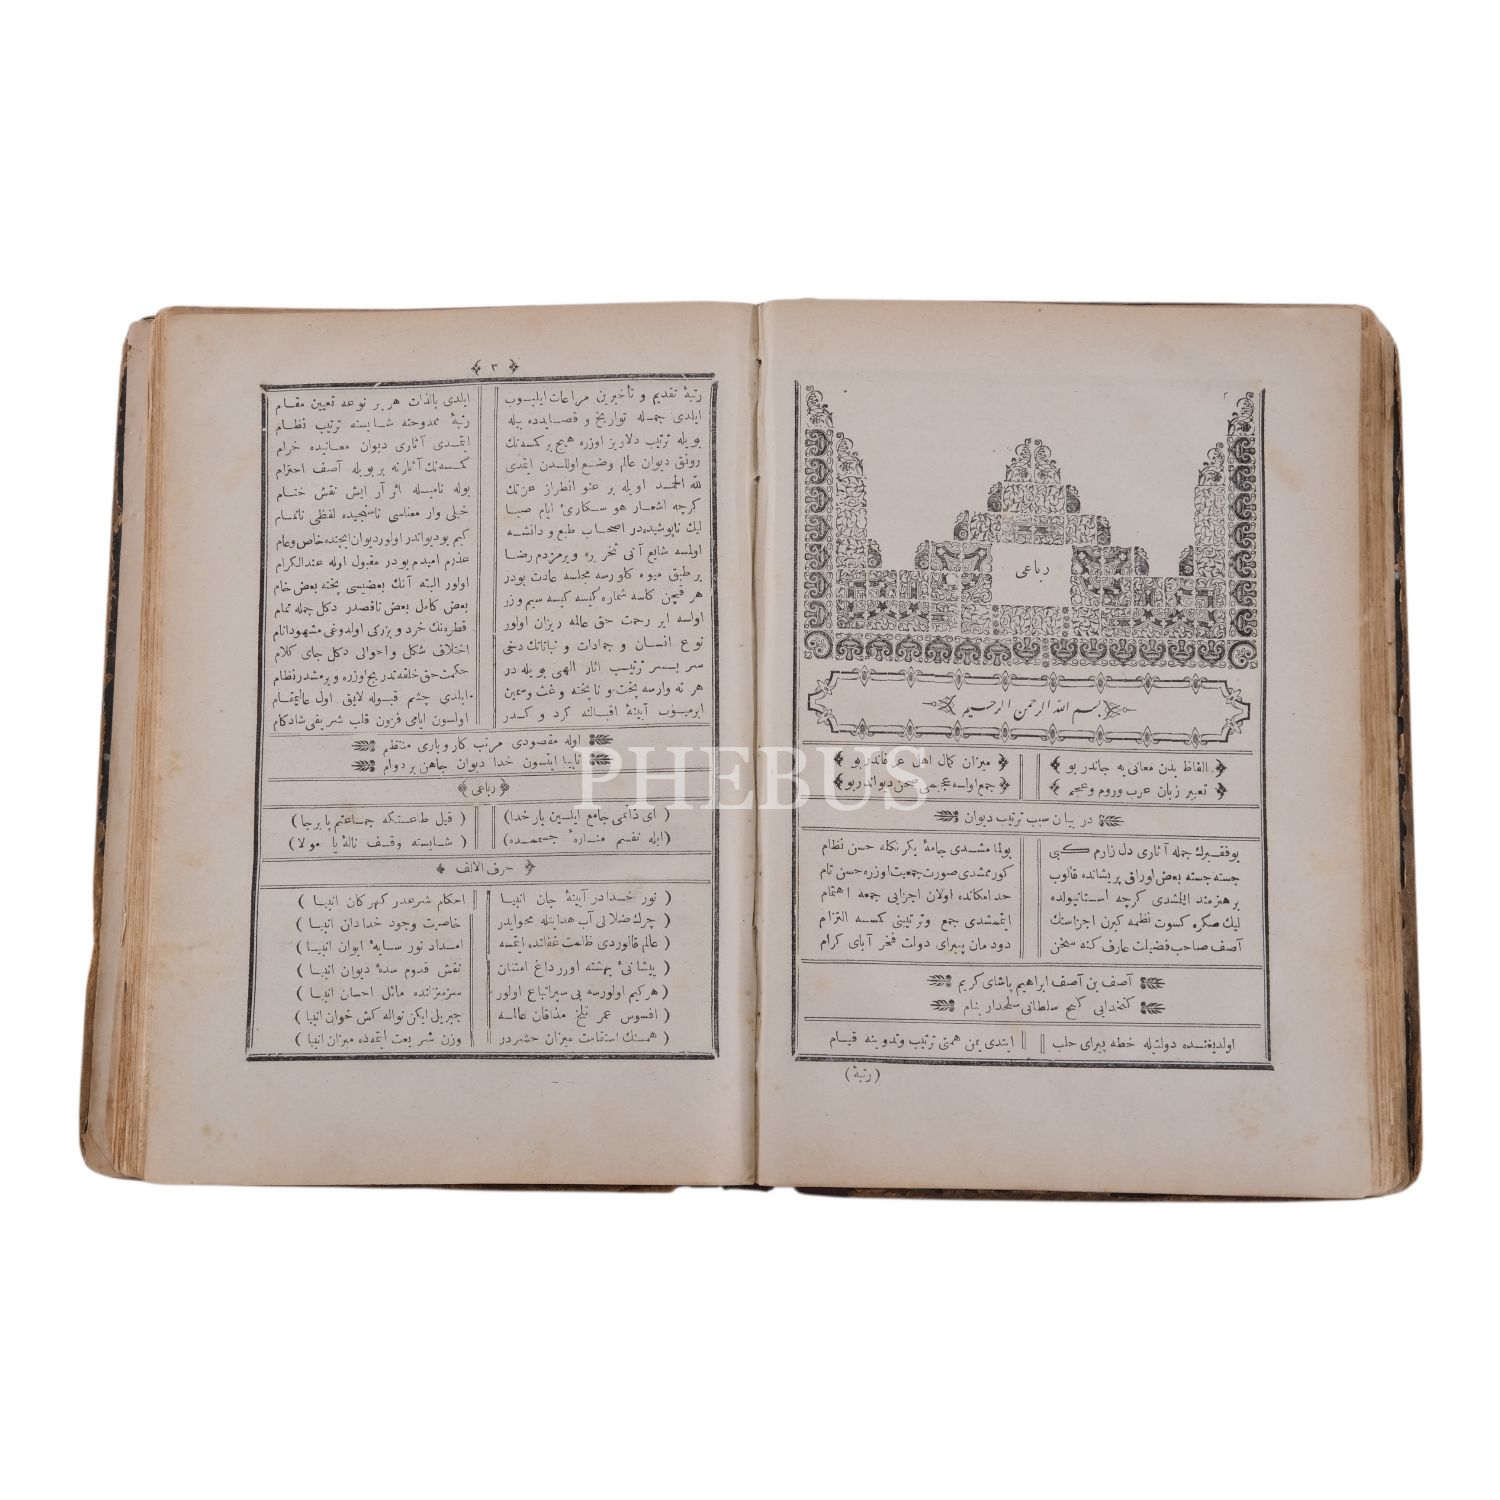 ٢
رباعی
بسم الله الرحمن الرحیم
الفاظ بدن معانی یه جاندر بو میزان کمال اهل عرفاندر بو
تعبیر زبان عرب وروم وعجم جمع اولسه عجبمی صحن دیواندر بو
در بیان سبب ترتیب دیوان
بوفقیرك جمله آثاری دل زارم کبی بولمامشدی جامهٔ یکرنکله حسن نظام
جسته جسته بعض اوراق پریشانده قالوب کورممشدی صورت جمعیت اوزره حسن تام
بر هنرمند ایلمشدی کرچه استانبولده حد امکانده اولان اجزایی جمعه اهتمام
لیك صکره کسوت نظمه کیرن اجزاسنك ایتمشدی جمع وترتیبنی کمسه التزام
آصف صاحب فضیلت عارف کنه سخن دودمان پیرای دولت فخر آبای کرام
آصف بن آصف ابراهیم پاشای کریم
کتخدایی کنج سلطانی سلحدار بنام
اولدیغنده دولتیله خطه پیرای حلب ایتدی یمن همتی ترتیب وتدوینه قیام
(رتبهٔ)
٣
رتبهٔ تقدیم و تأخیرین مراعات ایلیوب ایلدی بالذات هر بر نوعه تعیین مقام
ایلدی جمله تواریخ و قصایدده بیله رتبهٔ ممدوحنه شایسته ترتیب نظام
بویله ترتیب دلاویز اوزره هیچ بر کمسه‌نك ایتمدی آثاری دیوان معانیده خرام
رونق دیوان عالم وضع اولندن ایتمدی کمسه‌نك آثارنه بر بویله آصف احترام
لله الحمد اویله بر عنوانطراز عزتك بوله نامیله اثر آرایش نقش ختام
کرچه اشعار هوسکاریٔ ایام صبا خیلی وار معناسی ناسنجیده لفظی ناتمام
لیك ناپوشیده‌در اصحاب طبع و دانشه کیم بودیواندر اولور دیوان ایچنده خاص وعام
اولمسه شایع آنی نخرره ویرمزدم رضا عذرم امیدم بودر مقبول اوله عندالکرام
بر طبق میوه کاورسه مجلسه عادت بودر اولور البته آنك بعضیسی پخته بعض خام
هر قچن کاسه شماره کیسه کیسه سیم وزر بعض کامل بعض ناقصدر دکل جمله تمام
اولسه ابر رحمت حق عالمه ریزان اولور قطره‌نك خرد و بزرکی اولدوغی مشهود انام
نوع انسان و جمادات و نباتاتك دخی اختلاف شکل واحوالی دکل جای کلام
سر بسر ترتیب اثار الهی بویله در حکمت حق خلقه تدریج اوزره ویرمشدر نظام
هر نه وارسه پخت و ناپخته و غث وسمین ایلدی چشم قبوله لایق اول عالیمقام
ایرمیوب آیینهٔ اقبالنه کرد و کدر اولسون ایامی فزون قلب شریفی شادکام
اوله مقصودی مرتب کار وباری منتظم
نابیا ایتسون خدا دیوان جاهن بردوام
رباعی
(ای ذاتمی جامع ایلین بار خدا) (قیل طاعتکه جماعتم پا برجا)
(ایله نفسم منارهٔ جسممده) (شایسته وقف نالهٔ یا مولا)
حرف الالف
(نور خدادر آیینهٔ جان انبیا احکام شرعدر کهر کان انبیا)
(چرك ضلالی آب هدایتله محوایدر خاصیت وجود خدادان انبیا)
(عالم قالوردی ظلمت غفلتده ایتمسه امداد نور سایهٔ ایوان انبیا)
(پیشانیٔ بهشته اورر داغ امتنان نقش قدوم سدهٔ دیوان انبیا)
(هرکیم اولورسه پی سپر اتباع اولور سرمنزلنده مائل احسان انبیا)
(افسوس عمر تلخ مذاقان عالمه جبریل ایکن نواله کش خوان انبیا)
(همسنك استقامت میزان حشردر وزن شریعت ایتمه‌ده میزان انبیا)
PHEBUS